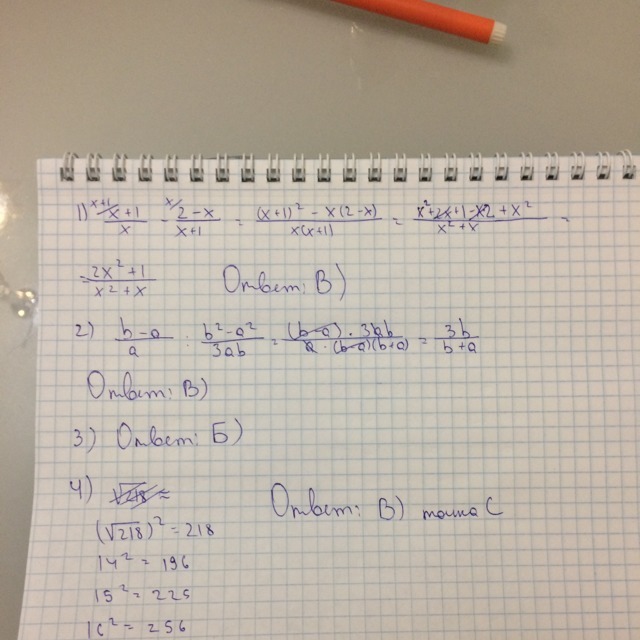 1) ^{x+1/} (x+1)/x - ^{x/} (2-x)/(x+1) = ((x+1)² - x(2-x))/(x(x+1)) = (x²+2x+1-x2+x²)/(x²+x) =
= (2x²+1)/(x²+x) Ответ: В)
2) (b-a)/a : (b²-a²)/(3ab) = ((b-a) · 3ab)/(a · (b-a)(b+a)) = 3b/(b+a)
Ответ: В)
3) Ответ: Б)
4) √218 ≈
Ответ: В) точка С
(√218)² = 218
14² = 196
15² = 225
16² = 256